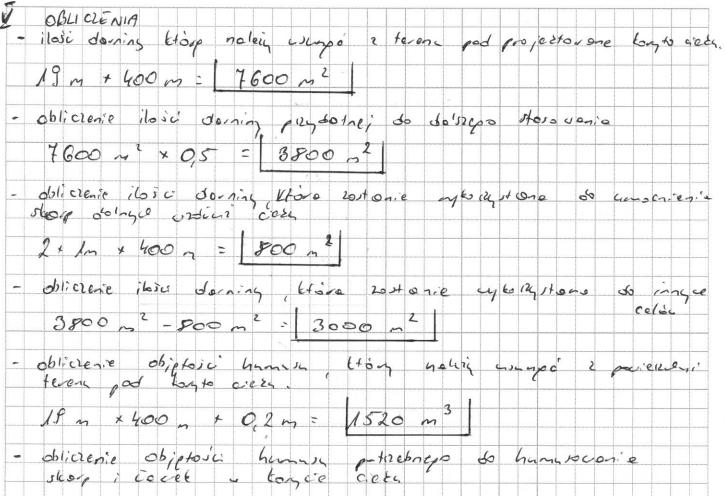 V OBLICZENIA
- ilość darniny którą należy usunąć z terenu pod projektowane koryto cieku.
19 m * 400 m = 7600 m²
- obliczenie ilości darniny przydatnej do dalszego stosowania
7600 m² × 0,5 = 3800 m²
- obliczenie ilości darniny, która zostanie wykorzystana do umocnienia
skarp dolnych cieku
2 * 1m * 400 m = 800 m²
- obliczenie ilości darniny, która zostanie wykorzystana do innych
celów
3800 m² - 800 m² = 3000 m²
- obliczenie objętości humusu, który należy usunąć z powierzchni
terenu pod koryto cieku.
19 m × 400 m * 0,2 m = 1520 m³
- obliczenie objętości humusu potrzebnego do humusowania
skarp i ławek w korycie cieku